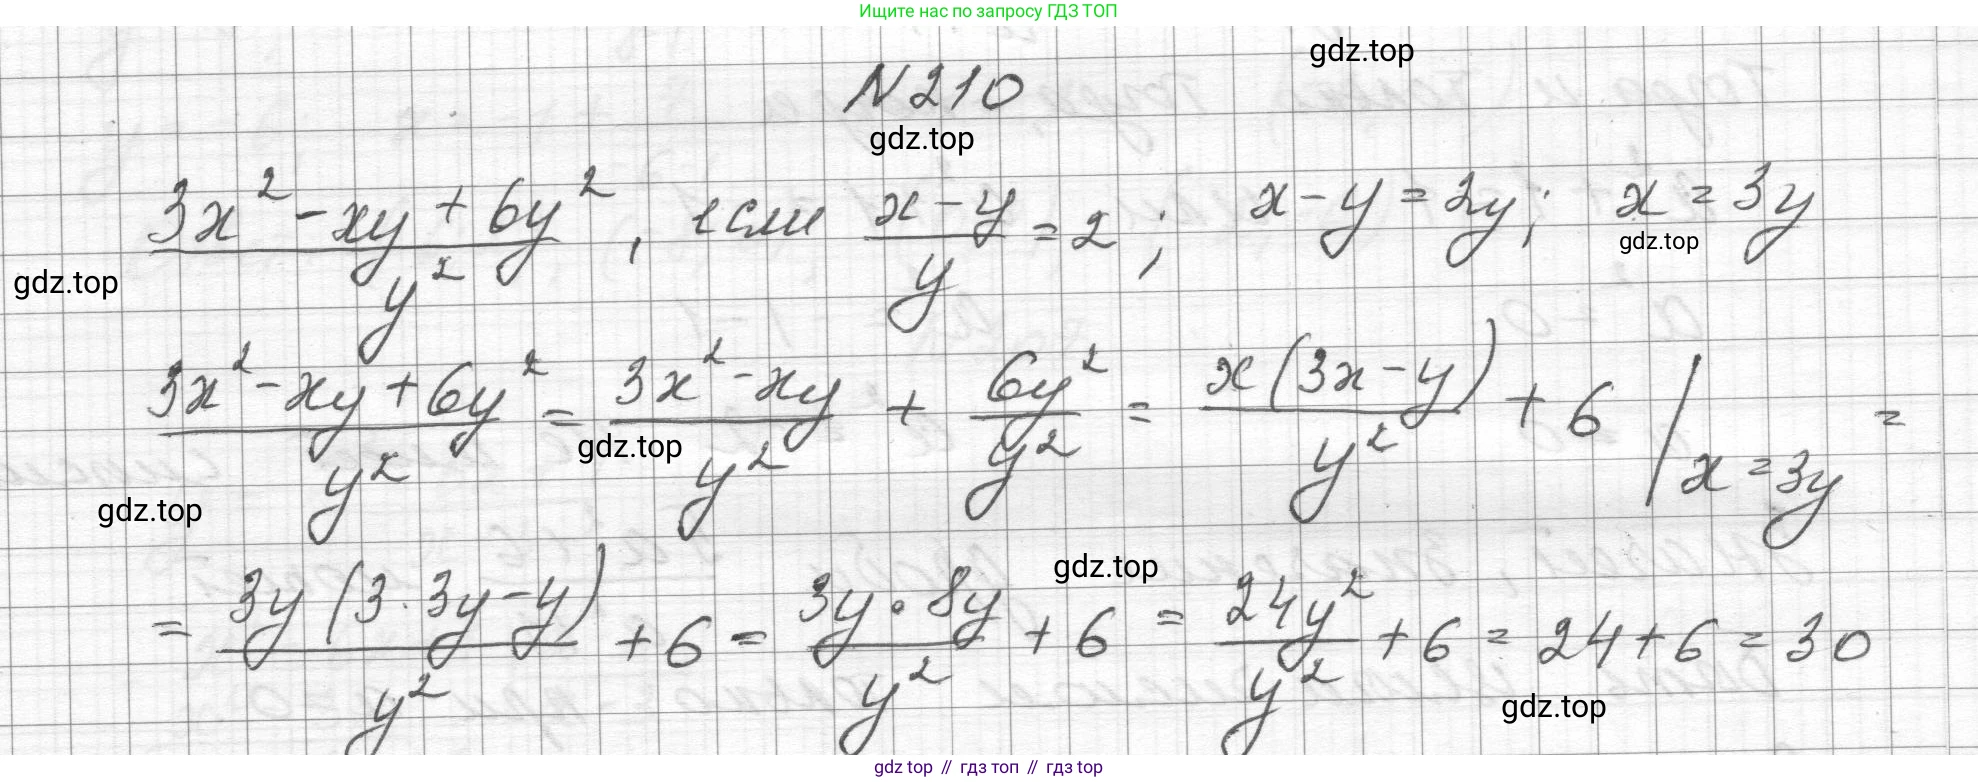 Ищите нас по запросу ГДЗ ТОП
gdz.top
N210
gdz.top
(3x² - xy + 6y²)/y², если (x - y)/y = 2; x - y = 2y; x = 3y
gdz.top
gdz.top
(3x² - xy + 6y²)/y² = (3x² - xy)/y² + 6y²/y² = x(3x - y)/y² + 6 | x = 3y =
gdz.top
gdz.top
gdz.top
= 3y(3·3y - y)/y² + 6 = 3y·8y/y² + 6 = 24y²/y² + 6 = 24 + 6 = 30
gdz.top
gdz top // гдз топ // гдз top